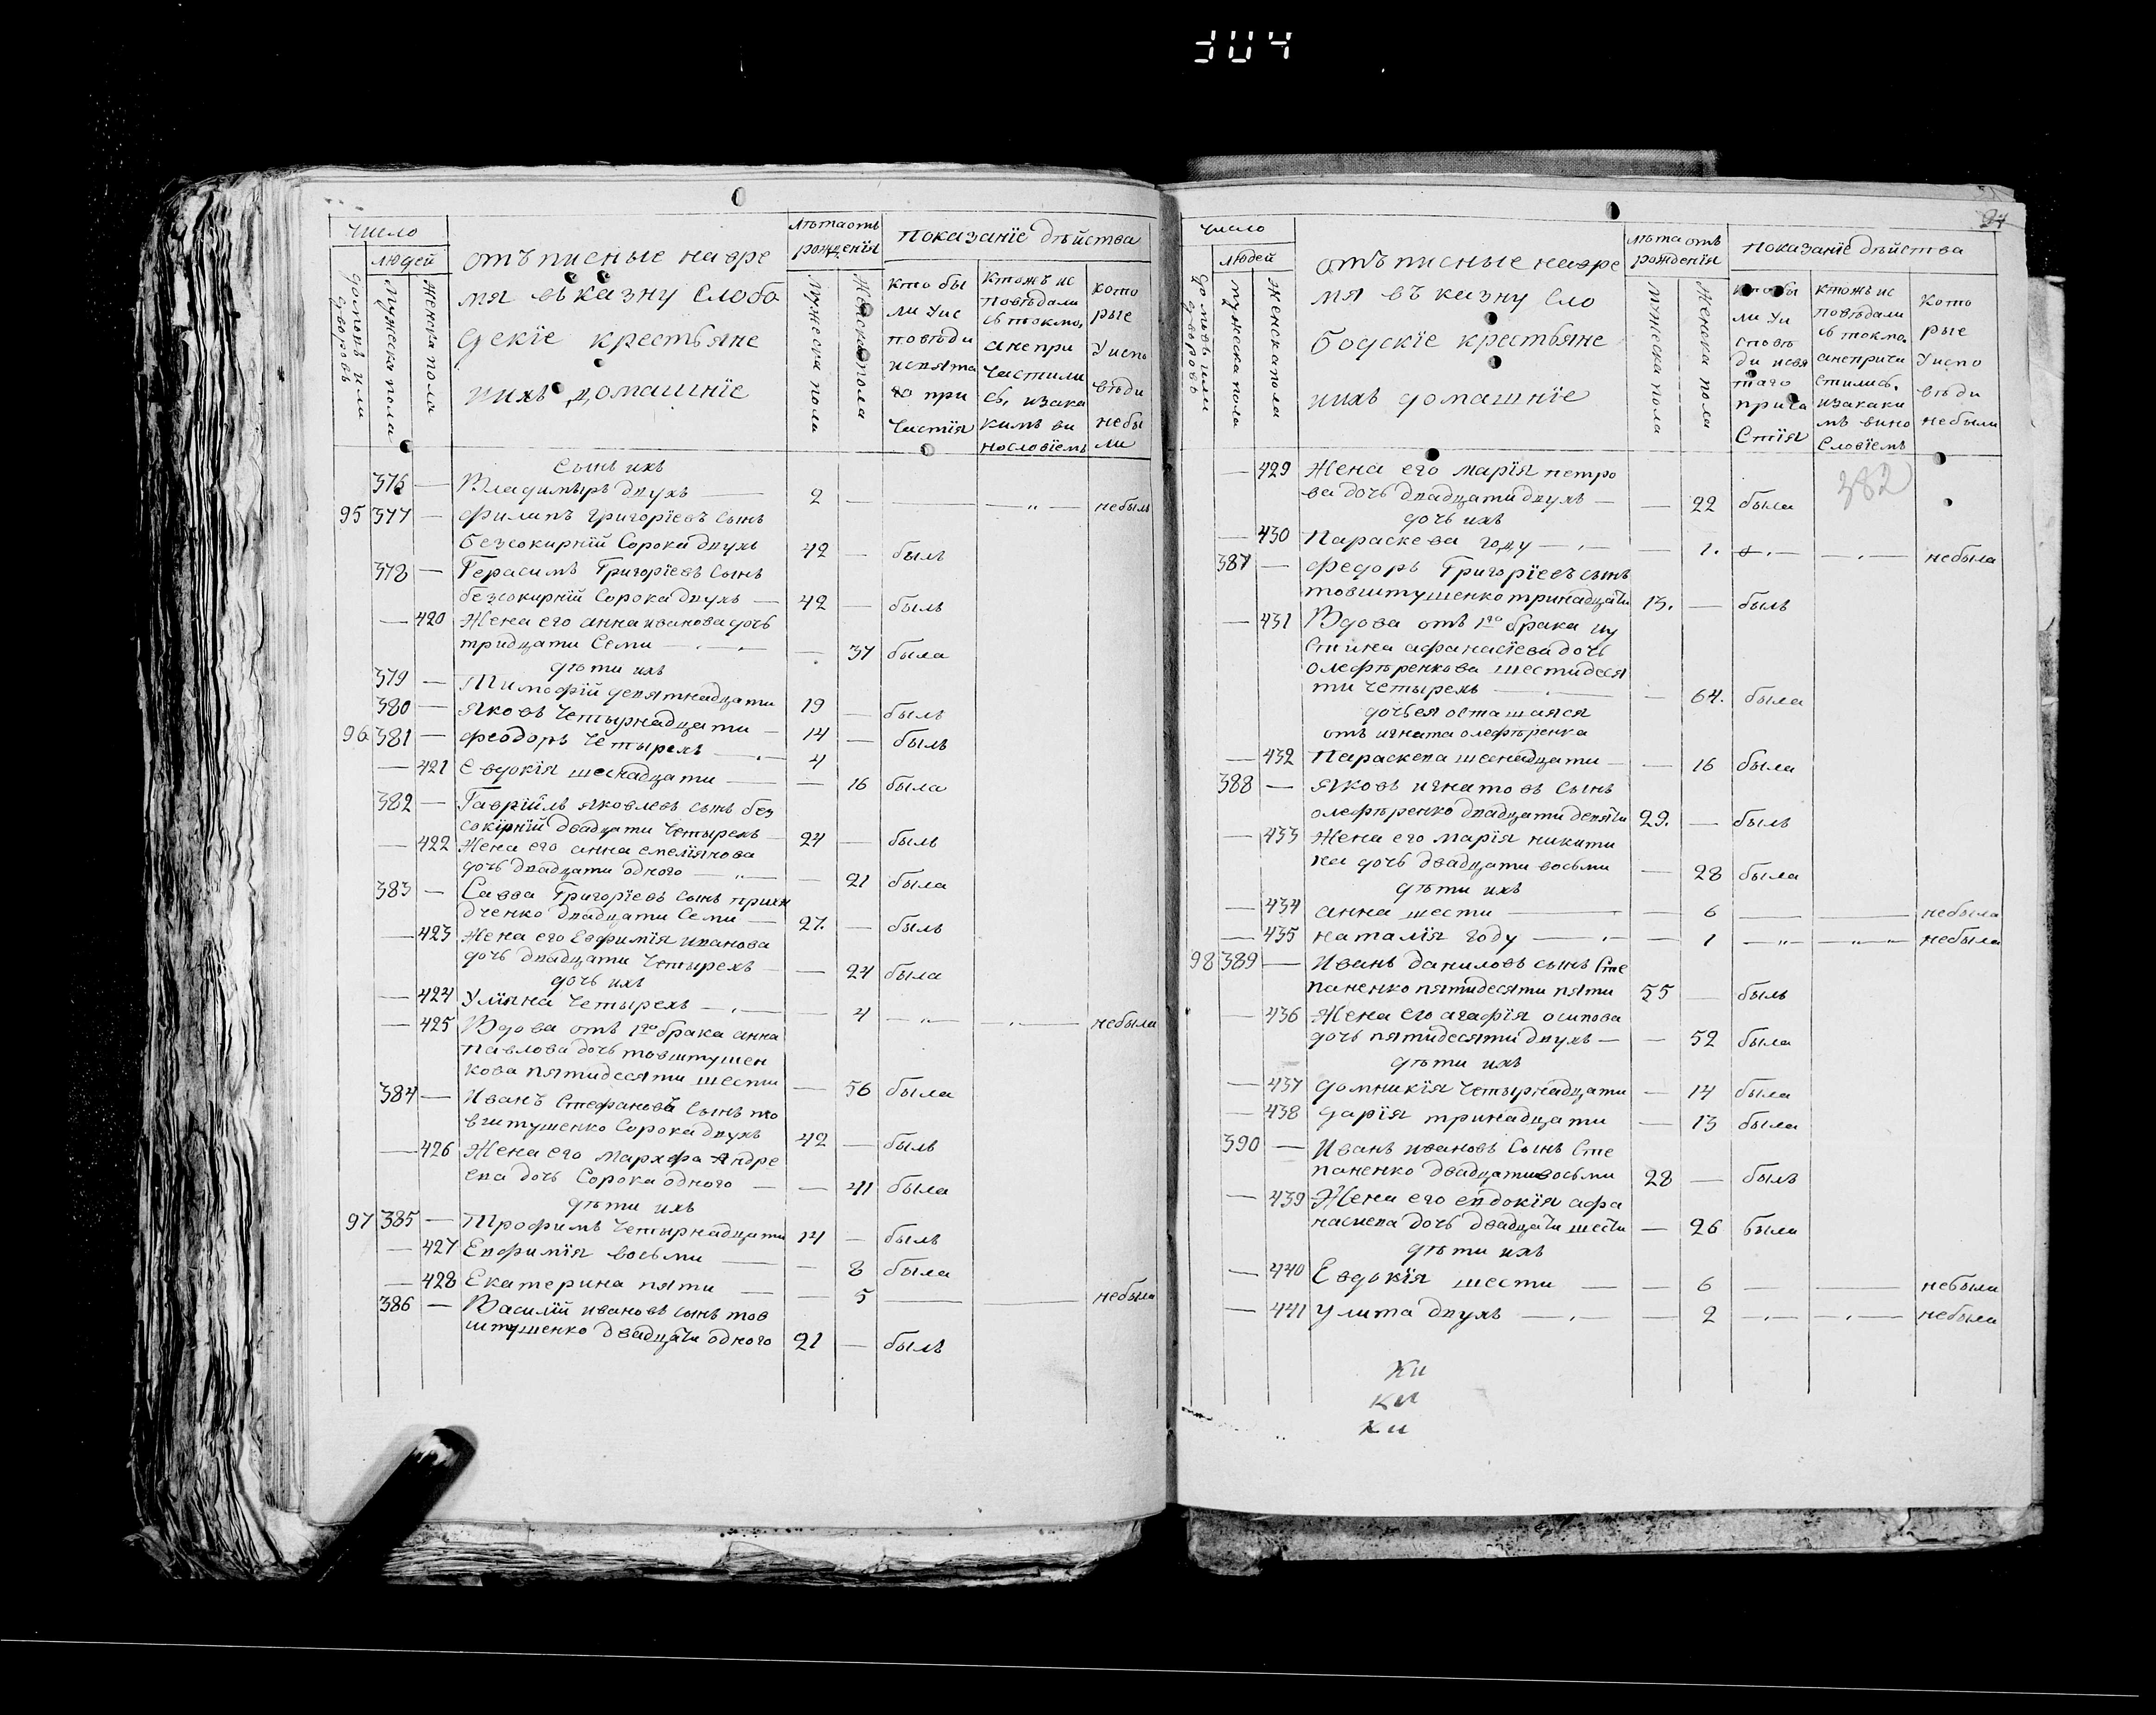 304
Число
людей
домовъ или дворовъ
Мужеска пола
Женска пола
отъписные навре
мя въ казну слобо
дскіе крестьяне
иихъ домашніе
лѣта отъ
рожденія
Мужеска пола
Женска пола
показаніе дѣйства
кто бы
ли у ис
повѣди
исвята
го при
частія
ктожъ ис
повѣдали
сь токмо,
анепри
частили
сь, изака
кимъ ви
нословіемъ
кото
рые
Уиспо
вѣди
небы
ли
сынъ ихъ
376 — Владимѣръ двухъ — 2 — — „ — небылъ
95 377 — филипъ григоріевъ сынъ
безсокирній Сорока двухъ 42 — былъ
378 — Герасимъ Григоріевъ сынъ
безсокирній Сорока двухъ — 42 — былъ
— 420 Жена его анна иванова дочь
тридцати Семи — 37 была
дѣти ихъ
379 — Тимофій девятнадцати 19 — былъ
380 — яковъ Четырнадцати — 14 — былъ
96 381 — феодоръ четырехъ — 4
— 421 Евдокія шеснадцати — — 16 была
382 — Гавріилъ яковлевъ сынъ без
сокірній двадцати Четырехъ — 24 — былъ
— 422 Жена его анна емеліянова
дочь двадцати одного — „ — — 21 была
383 — Савва Григоріевъ сынъ прихи
дченко двадцати Семи — 27. — былъ
— 423 Жена его Евфимія иванова
дочь двадцати Четырехъ — — 24 была
дочь ихъ
— 424 Уліяна Четырехъ — — 4 — „ — — небыла
— 425 Вдова отъ 1го брака анна
павлова дочь товштушен
кова пятидесяти шести — 56 была
384 — Иванъ Стефановъ Сынъ то
вштушенко Сорока двухъ 42 — былъ
— 426 Жена его Мархфа Андре
ева дочь Сорока одного — — 41 была
дѣти ихъ
97 385 — Трофимъ Четырнадцати 14 — былъ
— 427 Евфимія восьми — — 8 была
— 428 Екатерина пяти — — 5 — — небыла
386 — Василій ивановъ сынъ тов
штушенко двадцати одного 21 — былъ
24
Число
людей
домовъ или дворовъ
мужеска пола
Женска пола
отъписные навре
мя въ казну сло
бодскіе крестьяне
иихъ домашніе
лѣта отъ
рожденія
мужеска пола
Женска пола
показаніе дѣйства
кто бы
ли уи
сповѣ
ди исвя
таго
прича
стія
ктожъ ис
повѣдали
сь токмо,
анепричи
стились,
изакаки
мъ вино
словіемъ
кото
рые
Уиспо
вѣди
небыли
382
— 429 Жена его марія петро
ва дочь двадцати двухъ — — 22 была
дочь ихъ
— 430 Параскева году — — 1. — — небыла
387 — федоръ Григоріевъ сынъ
товштушенко тринадцати 13. — былъ
— 431 Вдова отъ 1го брака иу
стина афанасіева дочь
олефѣренкова шестидеся
ти Четырехъ — — 64. была
дочь ея осташаяся
отъ игната олефѣренка
— 432 Параскева шеснадцати — — 16 была
388 — яковъ игнатовъ сынъ
олефѣренко двадцати девяти 29. — былъ
— 433 Жена его марія никити
на дочь двадцати восьми — 28 была
дѣти ихъ
— 434 анна шести — — 6 — — небыла
— 435 наталія году — — 1 — „ — — „ — небыла
98 389 — Иванъ даниловъ сынъ Сте
паненко пятидесяти пяти 55 — былъ
— 436 Жена его агафія осипова
дочь пятидесяти двухъ — — 52 была
дѣти ихъ
— 437 домникія Четырнадцати — 14 была
— 438 дарія тринадцати — 13 была
390 — Иванъ ивановъ сынъ Сте
паненко двадцативосьми 28 — былъ
— 439 Жена его евдокія афа
насиева дочь двадцати шести — 26 была
дѣти ихъ
— 440 Евдокія шести — — 6 — — небыла
— 441 улита двухъ — — 2 — — небыла
Ки
ки
ки